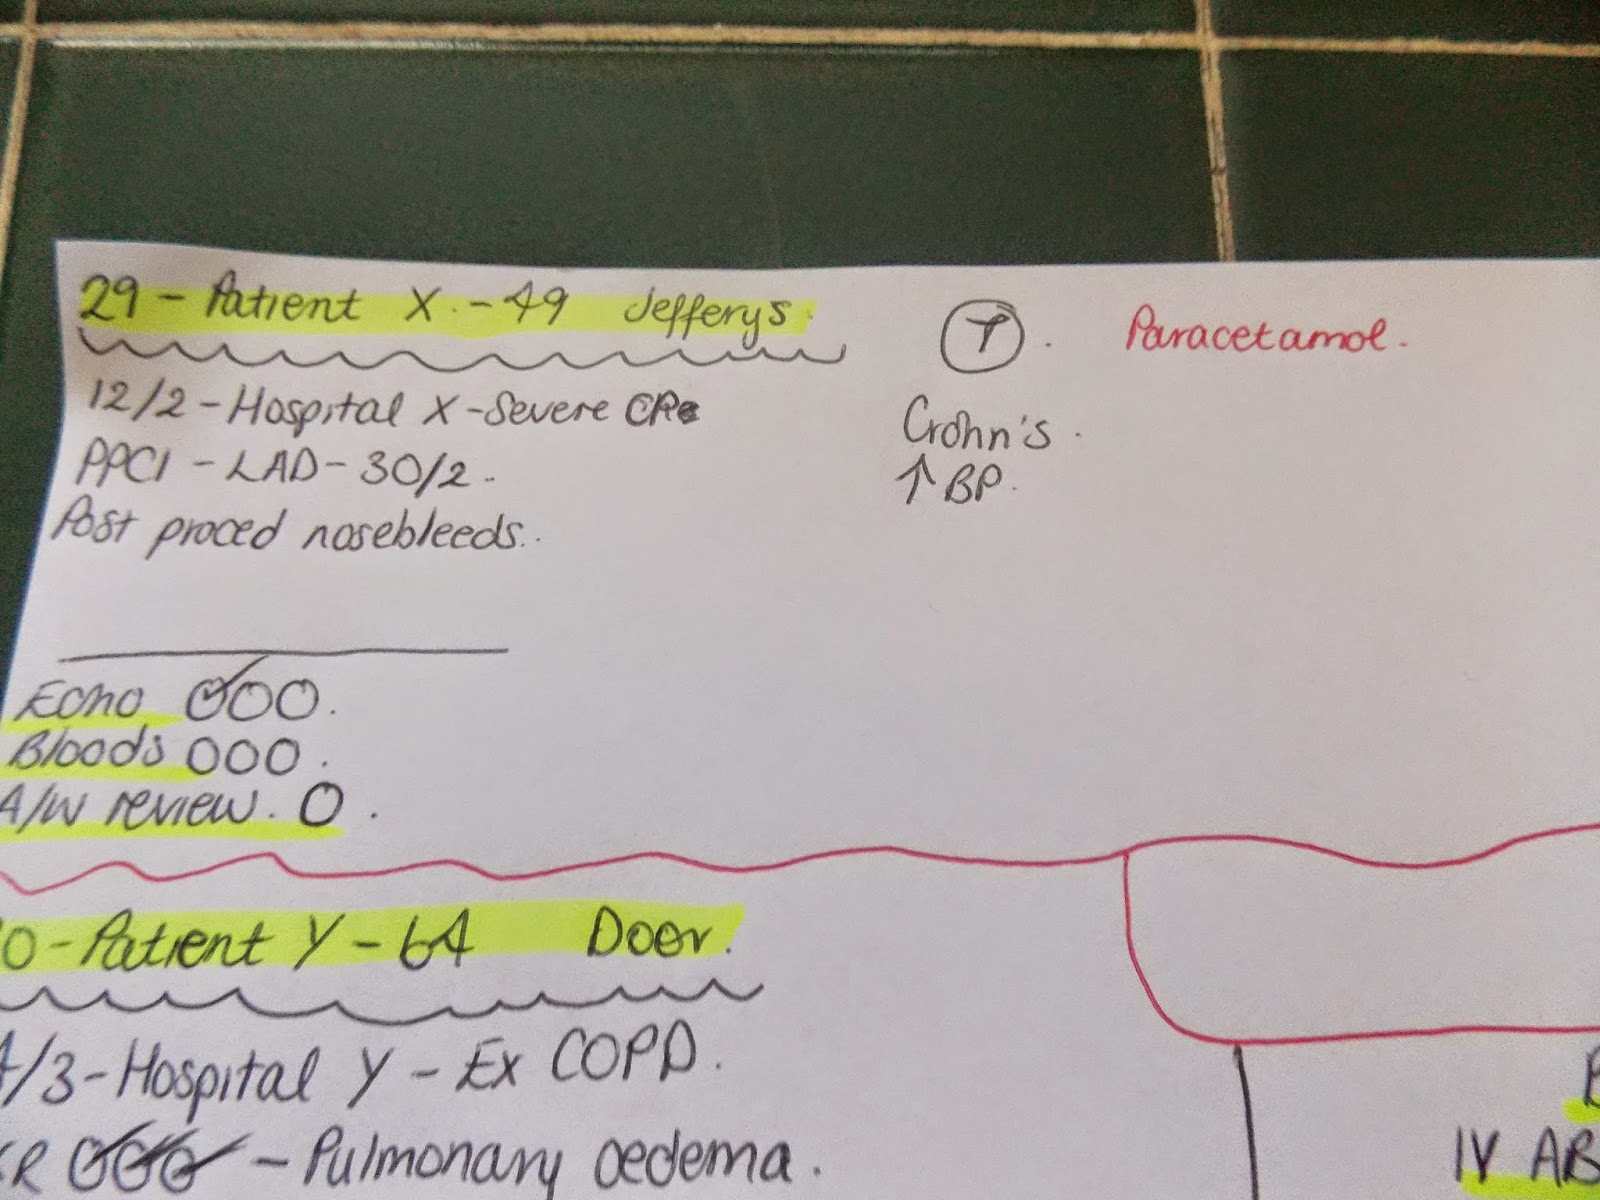 29 - Patient X. - 49 Jefferys.
T. Paracetamol.
12/2 - Hospital X - Severe
Crohn's.
PPCI - LAD - 30/2.
↑ BP.
Post proced nosebleeds..
Echo OOO.
Bloods OOO.
A/W review. O.
0 - Patient Y - 64 Door.
/3 - Hospital Y - Ex COPD.
R OOO - Pulmonary oedema.
IV AB